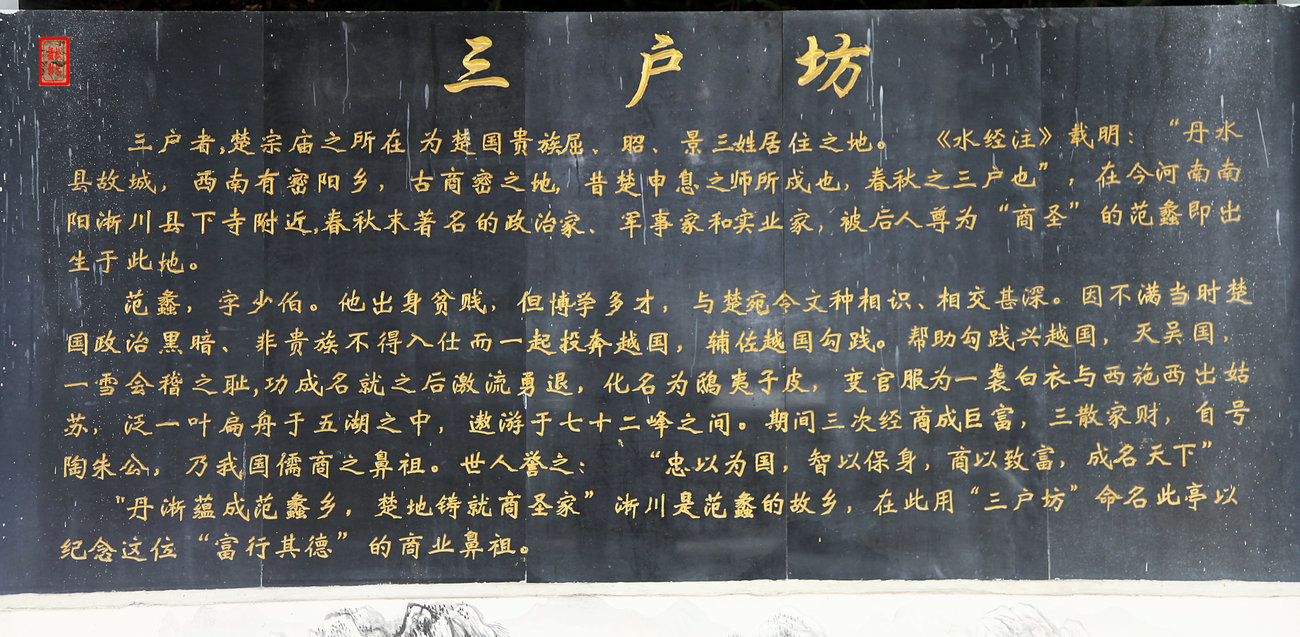 三户坊
三户者,楚宗庙之所在为楚国贵族屈、昭、景三姓居住之地。《水经注》载明:“丹水
县故城,西南有密阳乡,古商密之地,昔楚申息之师所戍也,春秋之三户也”,在今河南南
阳淅川县下寺附近,春秋末著名的政治家、军事家和实业家,被后人尊为“商圣”的范蠡即出
生于此地。
范蠡,字少伯。他出身贫贱,但博学多才,与楚宛令文种相识、相交甚深。因不满当时楚
国政治黑暗、非贵族不得入仕而一起投奔越国,辅佐越国勾践。帮助勾践兴越国,灭吴国,
一雪会稽之耻,功成名就之后激流勇退,化名为鸱夷子皮,变官服为一袭白衣与西施西出姑
苏,泛一叶扁舟于五湖之中,遨游于七十二峰之间。期间三次经商成巨富,三散家财,自号
陶朱公,乃我国儒商之鼻祖。世人誉之:“忠以为国,智以保身,商以致富,成名天下”
"丹淅蕴成范蠡乡,楚地铸就商圣家”淅川是范蠡的故乡,在此用“三户坊”命名此亭以
纪念这位“富行其德”的商业鼻祖。